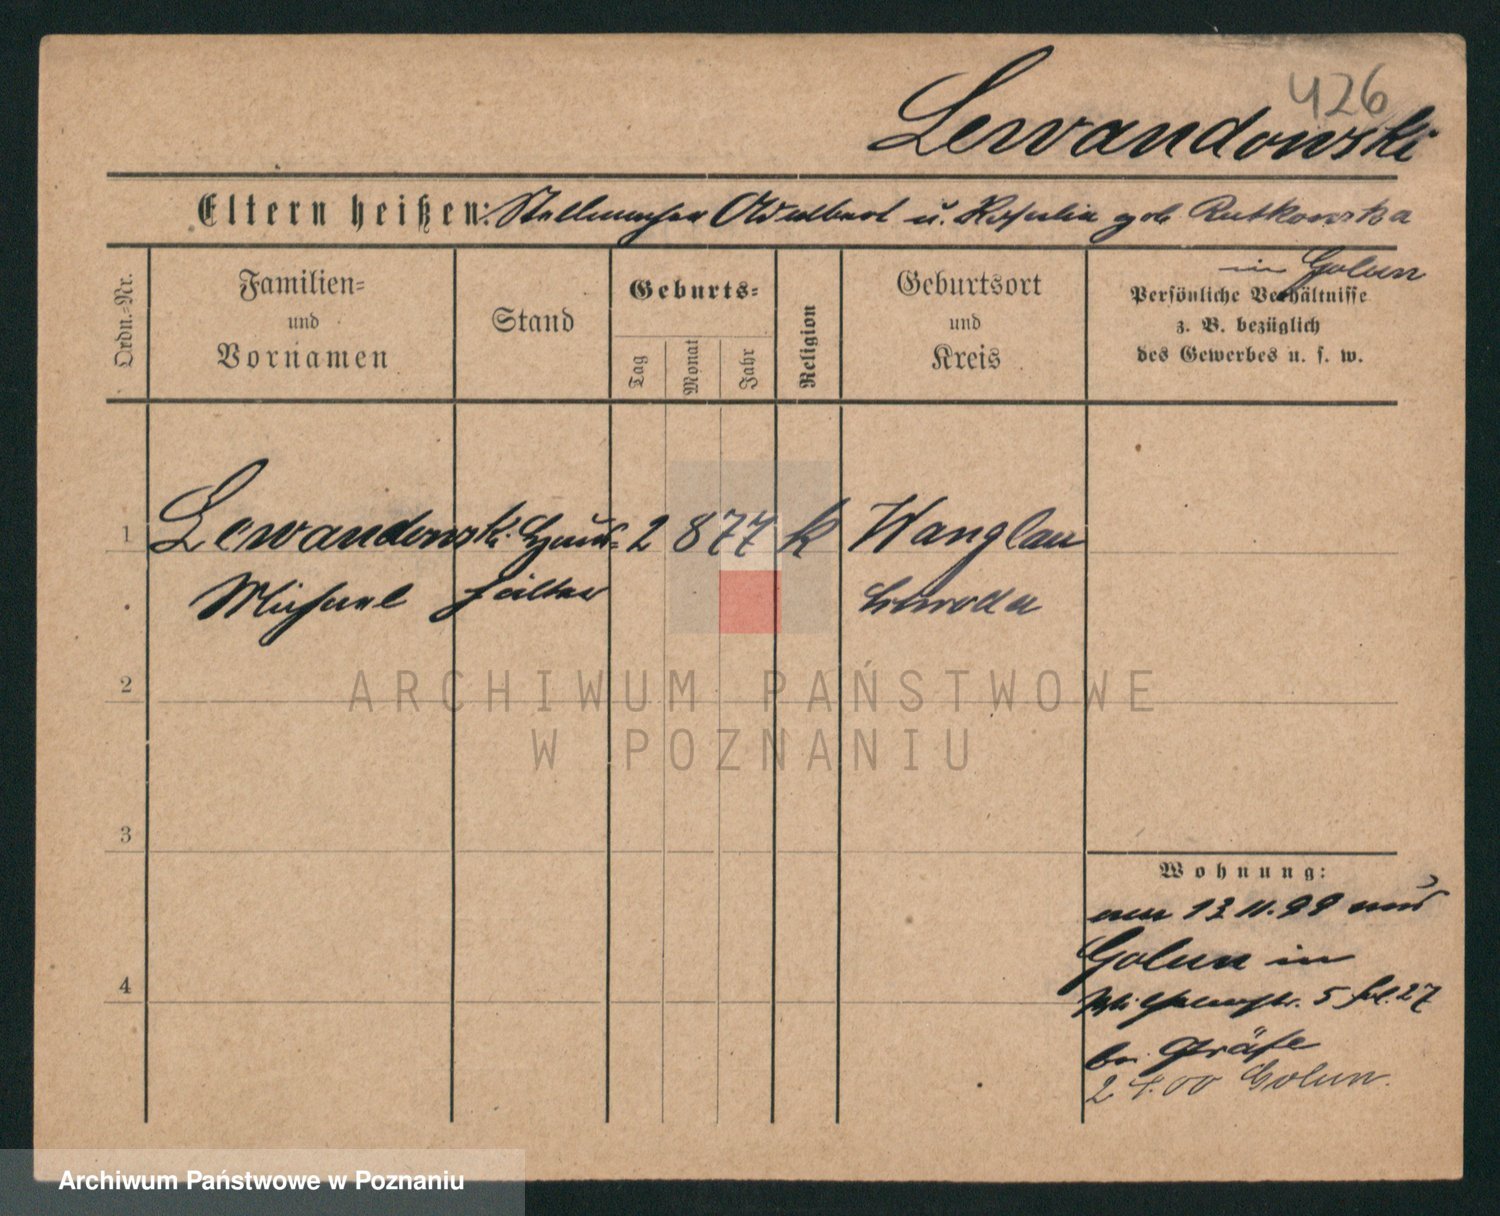 426
Lewandowski
Eltern heißen: Stellmacher Adalbert u. Rosalia geb Rutkowska
in Golun
Ordn.-Nr.
Familien-
und
Vornamen
Stand
Geburts-
Tag
Monat
Jahr
Religion
Geburtsort
und
Kreis
Persönliche Verhältnisse
z. B. bezüglich
des Gewerbes u. s. w.
1 Lewandowski Haus- 2 8 77 k Wanglau
Michael hälter Schroda
2
3
4
Wohnung:
am 13 11. 99 aus
Golun in
Wilhelmstr. 5 fol. 27
bei Gräfe
2 4.00 Golun.
ARCHIWUM PAŃSTWOWE
W POZNANIU
Archiwum Państwowe w Poznaniu